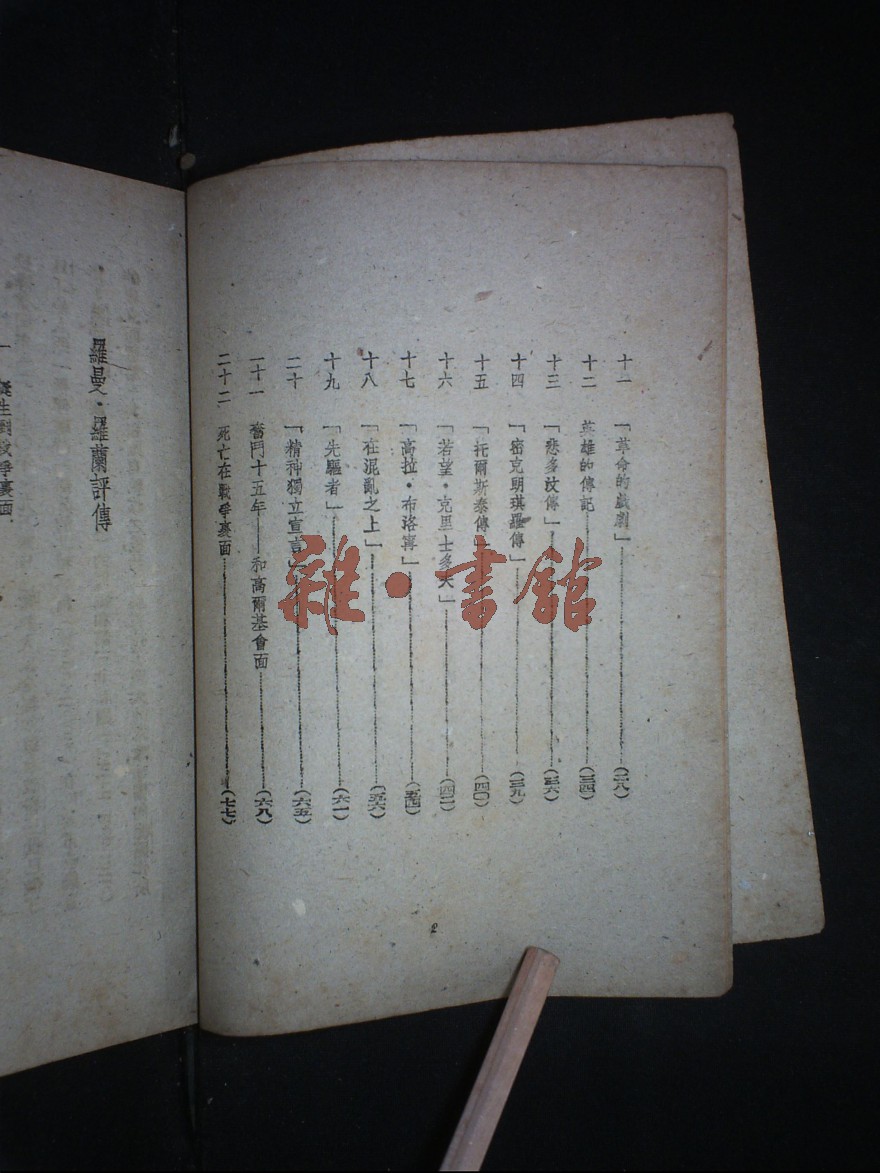 十一 「革命的戲劇」(二八)
十二 英雄的傳記(三四)
十三 「悲多汶傳」(三六)
十四 「密克朗琪羅傳」(三九)
十五 「托爾斯泰傳」(四〇)
十六 「若望・克里士多夫」(四二)
十七 「高拉・布洛寗」(五四)
十八 「在混亂之上」(五六)
十九 「先驅者」(六一)
二十 「精神獨立宣言」(六五)
二十一 奮鬥十五年——和高爾基會面(六八)
二十二 死亡在戰爭裏面(七七)
2
羅曼・羅蘭評傳
一 誕生到戰爭裏面
雜・書館